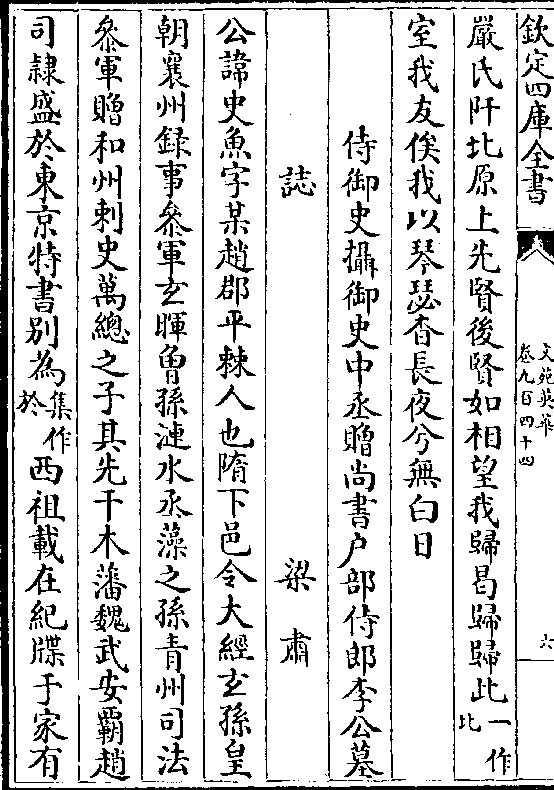 欽定四庫全書
文苑英華
卷九百四十四
六
嚴氏阡北原上先賢後賢如相望我歸曷歸歸此一作比
室我友俟我以琴瑟杳長夜兮無白日
侍御史攝御史中丞贈尚書戶部侍郎李公墓
誌
梁肅
公諱史魚字某趙郡平棘人也隋下邑令大經玄孫皇
朝襄州録事叅軍玄暉曽孫漣水丞藻之孫青州司法
叅軍贈和州刺史萬緫之子其先干木藩魏武安覇趙
司隷盛於東京特書别為集作於西祖載在紀牒于家有